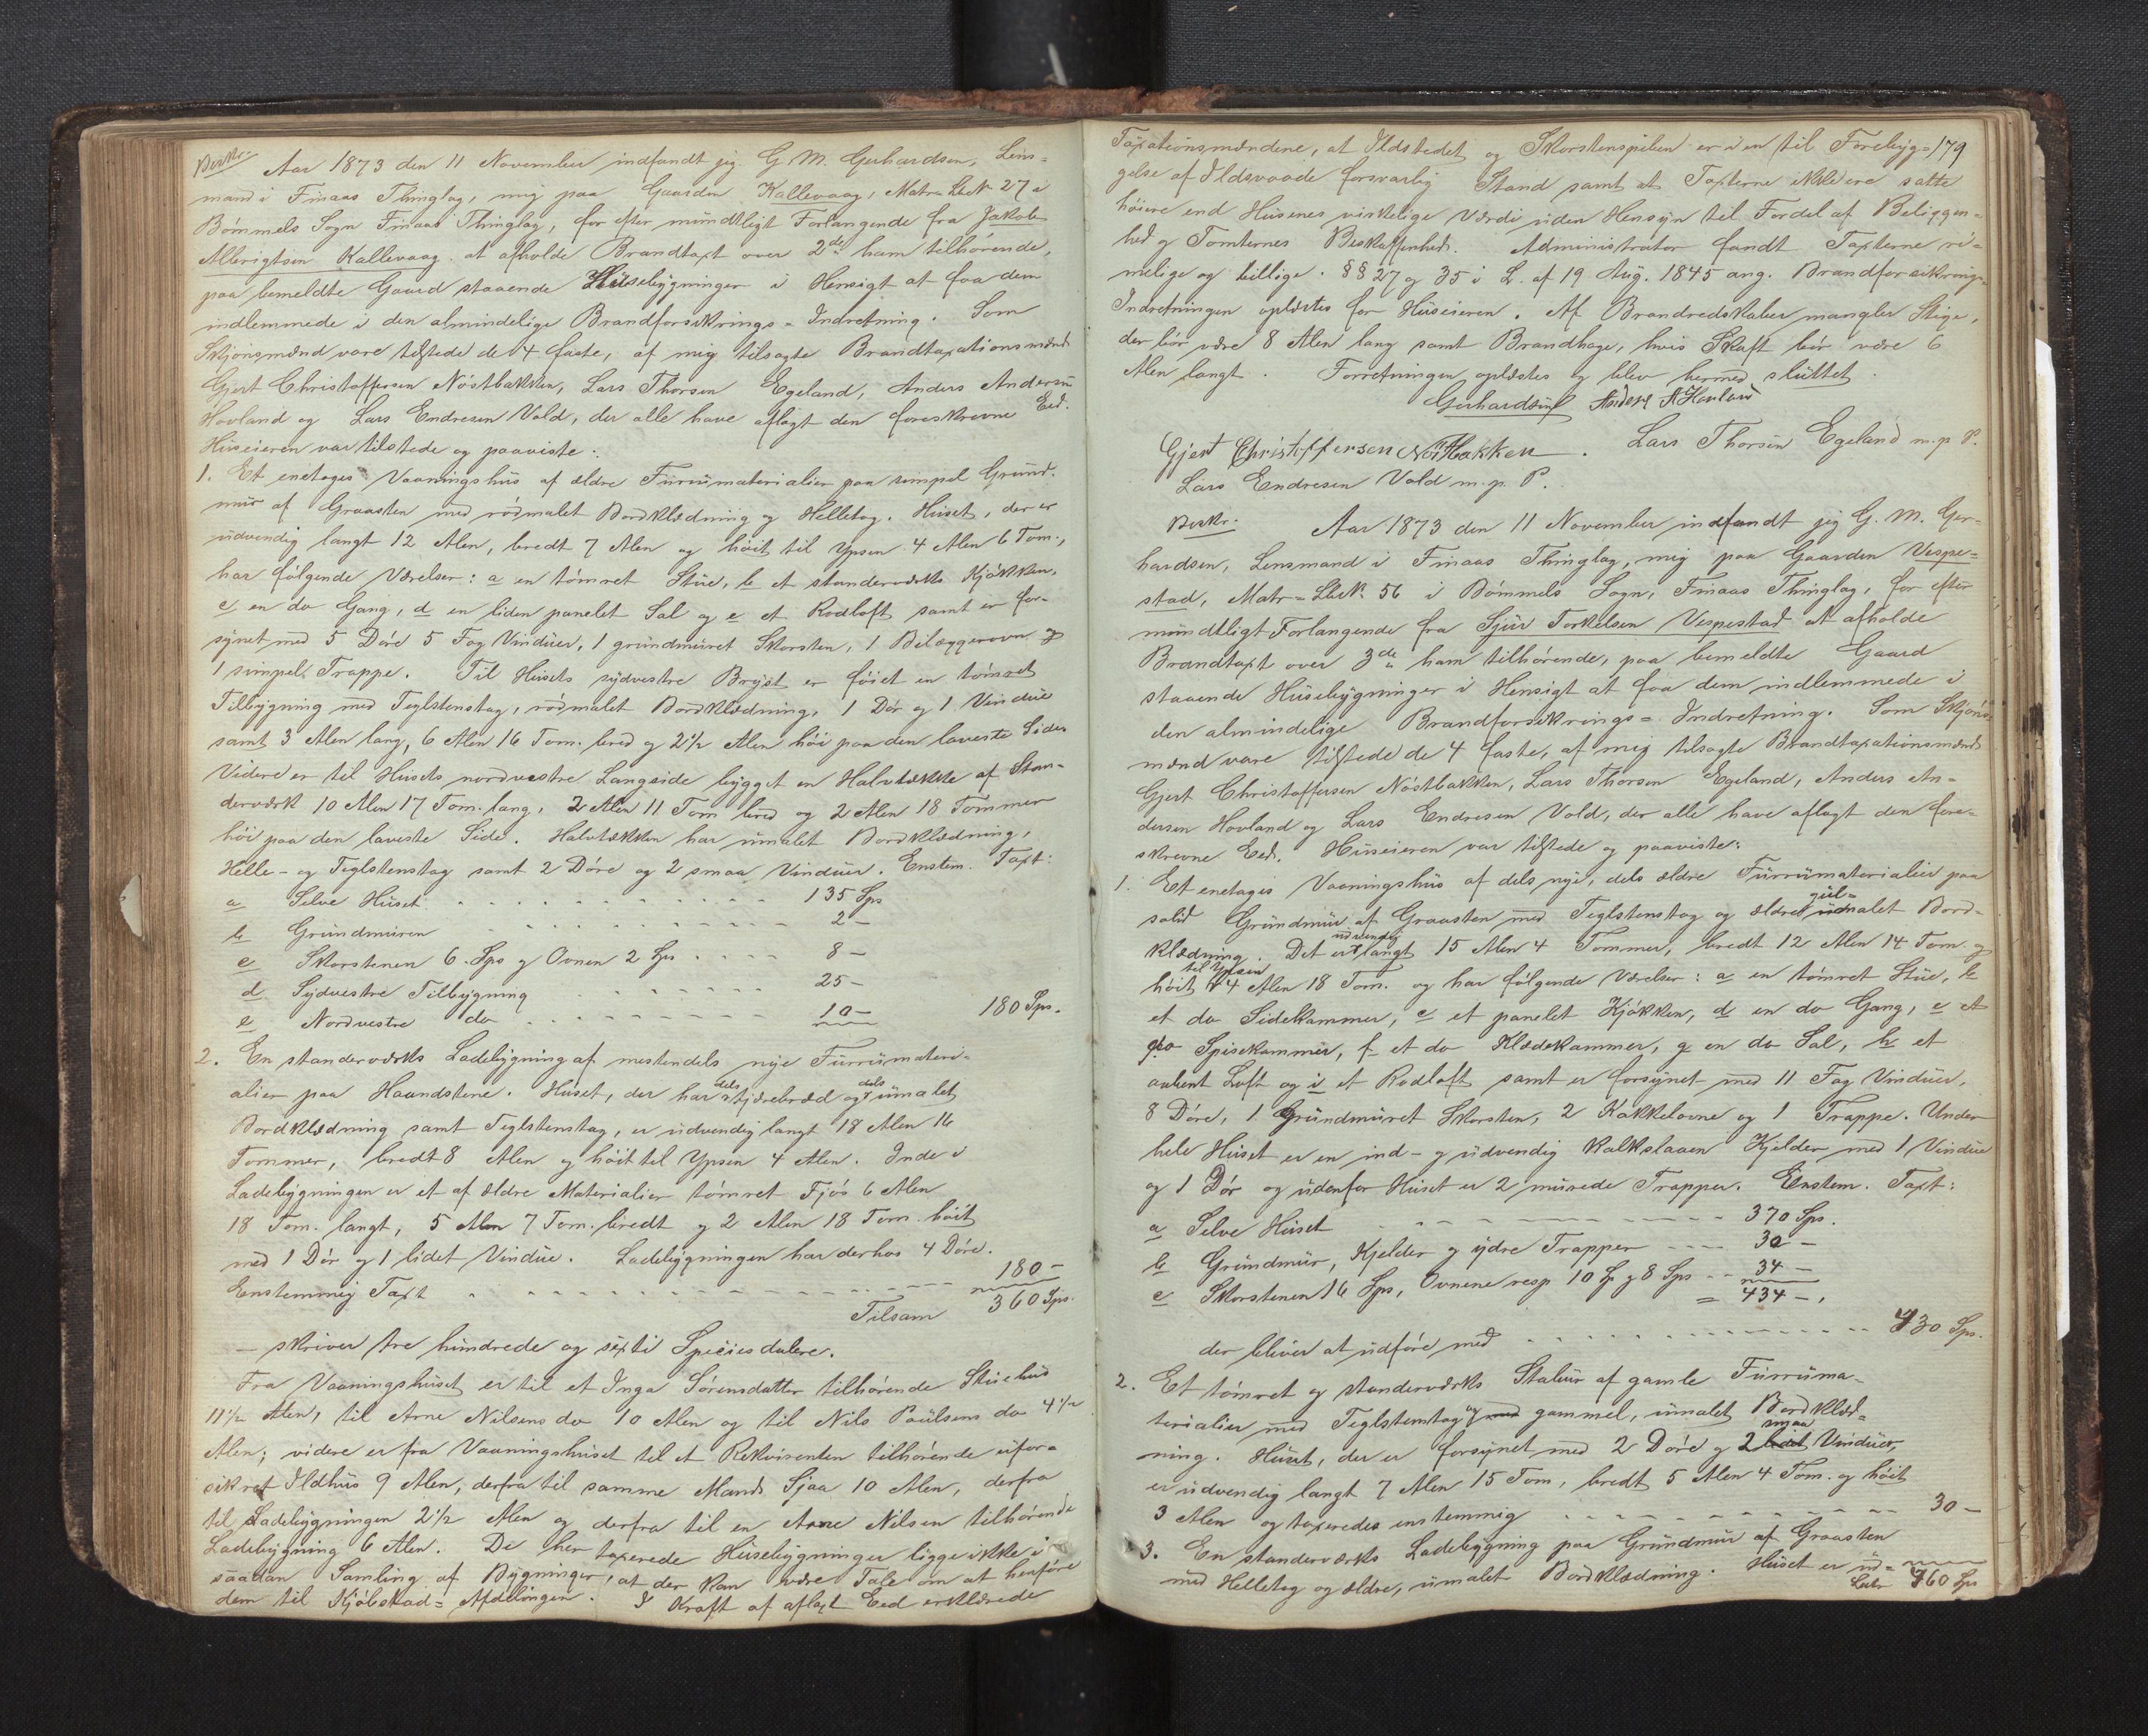 Beskr. Aar 1873 den 11 November indfandt jeg G. M. Gerhardsen, Lens-
mand i Finaas Thinglag, mig paa Gaarden Kallevaag, Matr-Løb№ 27 i
Bømmels Sogn Finaas Thinglag, for efter mündtligt Forlangende fra Jakob
Albrigtsen Kallevaag at afholde Brandtaxt over 2de ham tilhørende,
paa bemeldte Gaard staaende Hüsebygninger i Hensigt at faa dem
indlemmede i den almindelige Brandforsikrings-Indretning. Som
Skjønsmænd vare tilstede de 4 faste, af mig tilsagte Brandtaxationsmænd
Gjert Christoffersen Nøstbakken, Lars Thorsen Egeland, Anders Andersen
Hovland og Lars Endresen Vold, der alle have aflagt den foreskrevne Eed.
Hüseieren var tilstede og paaviste:
1. Et enetages Vaaningshüs af ældre Fürrümaterialier paa simpel Gründ-
mür af Graasten med rødmalet Bordklædning og Helletag. Hüset, der er
üdvendig langt 12 Alen, bredt 7 Alen og høit til Ypsen 4 Alen 6 Tom.,
har følgende Værelser: a en tømret Stüe, b et standerværks Kjøkken,
c en do Gang, d en liden panelet Sal og e et Rodloft samt er for-
synet med 5 Døre 5 Fag Vindüer, 1 gründmüret Skorsten, 1 Bilæggerovn og
1 simpel Trappe. Til Hüsets sydvestre Bryst er føiet en tømret
Tilbygning med Teglstenstag, rødmalet Bordklædning, 1 Dør og 1 Vindüe
samt 3 Alen lang, 6 Alen 16 Tom. bred og 2 1/2 Alen høi paa den laveste Side.
Videre er til Hüsets nordvestre Langside bygget en Halvtækkke af Stan-
derværk 10 Alen 17 Tom. lang, 2 Alen 11 Tom bred og 2 Alen 18 Tommer
høi paa den laveste Side. Halvtækken har ümalet Bordklædning,
Helle- og Teglstenstag samt 2 Døre og 2 smaa Vindüer. Enstem. Taxt:
a Selve Hüset 135 Sps
b Gründmüren 2 -
c Skorstenen 6 Sps og Ovnen 2 Sps 8 -
d Sydvestre Tilbygning 25 -
e Nordvestre do 10 - 180 Sps.
2. En standerværks Ladebygning af mestendels nye Fürrümateri-
alier paa Haandstene. Hüset, der har dels tjærebræd og dels ümalet
Bordklædning samt Teglstenstag, er üdvendig langt 18 Alen 16
Tommer, bredt 8 Alen og høit til Ypsen 4 Alen. Inde i
Ladebygningen er et af ældre Materialier tømret Fjøs 6 Alen
18 Tom. langt, 5 Alen 7 Tom. bredt og 2 Alen 18 Tom. høit
med 1 Dør og 1 lidet Vindüe. Ladebygningen har derhos 4 Døre.
Enstemmig Taxt 180 -
Tilsam 360 Sps.
- skriver tre hündrede og sexti Speciesdalere.
Fra Vaaningshüset er til et Inga Sørensdatter tilhørende Stüehüs
11 1/2 Alen, til Arne Nilsens do 10 Alen og til Nils Paülsens do 4 1/2
Alen; videre er fra Vaaningshüset til et Rekvirenten tilhørende üfor-
sikret Ildhüs 9 Alen, derfra til samme Mands Sjaa 10 Alen, derfra
til Ladebygningen 2 1/2 Alen og derfra til en Arne Nilsen tilhørende
Ladebygning 6 Alen. De her taxerede Hüsebygninger ligge ikke i
saadan Samling af Bygninger, at der kan være Tale om at henføre
dem til Kjøbstad-Afdelingen. I Kraft af aflagt Eed erklærede
179
Taxationsmændene, at Ildstedet og Skorstenspiben er i en til Forebyg-
gelse af Ildsvaade forsvarlig Stand samt at Taxterne ikke ere satte
høiere end Hüsenes virkelige Værdi üden Hensyn til Fordel af Beliggen-
hed og Tomternes Beskaffenhed. Administrator fandt Taxterne ri-
melige og billige. §§ 27 og 35 i L. af 19 Aüg. 1845 ang. Brandforsikrings-
Indretningen oplæstes for Hüseieren. Af Brandredskaber mangler Stige,
der bør være 8 Alen lang samt Brandhage, hvis Skaft bør være 6
Alen langt. Forretningen oplæstes og blev hermed slüttet.
Gerhardsen Anders A Hovland
Gjert Christoffersen Nöstbakken. Lars Thorsen Egeland m. p. P.
Lars Endresen Vold m. p. P.
Beskr. Aar 1873 den 11 November indfandt jeg G. M. Ger-
hardsen, Lensmand i Finaas Thinglag, mig paa Gaarden Vespe-
stad, Matr-Løb№ 56 i Bømmels Sogn, Finaas Thinglag, for efter
mündtligt Forlangende fra Sjür Torkelsen Vespestad at afholde
Brandtaxt over 3de ham tilhørende, paa bemeldte Gaard
staaende Hüsebygninger i Hensigt at faa dem indlemmede i
den almindelige Brandforsikrings-Indretning. Som Skjøns-
mænd vare tilstede de 4 faste, af mig tilsagte Brandtaxationsmænd
Gjert Christoffersen Nøstbakken, Lars Thorsen Egeland, Anders An-
dersen Hovland og Lars Endresen Vold, der alle have aflagt den fore-
skrevne Eed. Hüseieren var tilstede og paaviste:
1. Et enetages Vaaningshüs af dels nye, dels ældre Fürrümaterialier paa
solid Gründmür af Graasten med Teglstenstag og ældre gülmalet Bord-
klædning. Det er üdvendig langt 15 Alen 4 Tommer, bredt 12 Alen 14 Tom. og
høit til Ypsen 4 Alen 18 Tom. og har følgende Værelser: a en tømret Stüe, b
et do Sidekammer, c et panelet Kjøkken, d en do Gang, e et
do Spisekammer, f et do Klædekammer, g en do Sal, h et
aabent Loft og i et Rodloft samt er forsynet med 11 Fag Vindüer,
8 Døre, 1 Gründmüret Skorsten, 2 Kakkelovne og 1 Trappe. Under
hele Hüset er en ind- og üdvendig kalkslaaen Kjelder med 1 Vindüe
og 1 Dør og üdenfor Hüset er 2 mürede Trapper. Enstem. Taxt:
a Selve Hüset 370 Sps.
b Gründmür, Kjelder og ydre Trapper 30 -
c Skorstenen 16 Sps, Ovnene resp. 10 Sp og 8 Sps 34 -
= 434 -,
der bliver at üdføre med 430 Sps.
2. Et tømret og standerværks Stabür af gamle Fürrüma-
terialier med Teglstenstag og gammel, ümalet Bordklæd-
ning. Hüset, der er forsynet med 2 Døre og 2 smaa Vindüer,
er üdvendig langt 7 Alen 15 Tom, bredt 5 Alen 4 Tom. og høit
3 Alen og taxeredes enstemmig 30 -
3. En standerværks Ladebygning paa Gründmür af Graasten
med Helletag og ældre, ümalet Bordklædning. Hüset er üd-
Latr 460 Sps